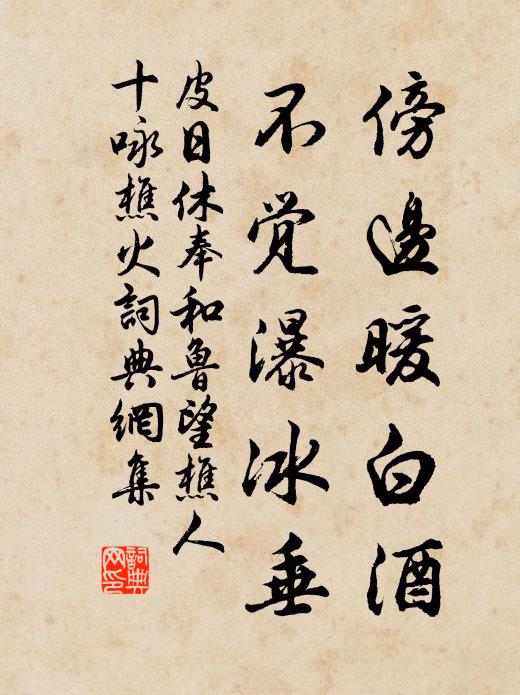 傍邊暖白酒
不觉瀑冰垂
皮日休奉和鲁望樵人
十咏樵火詞典網集
詞典
网印